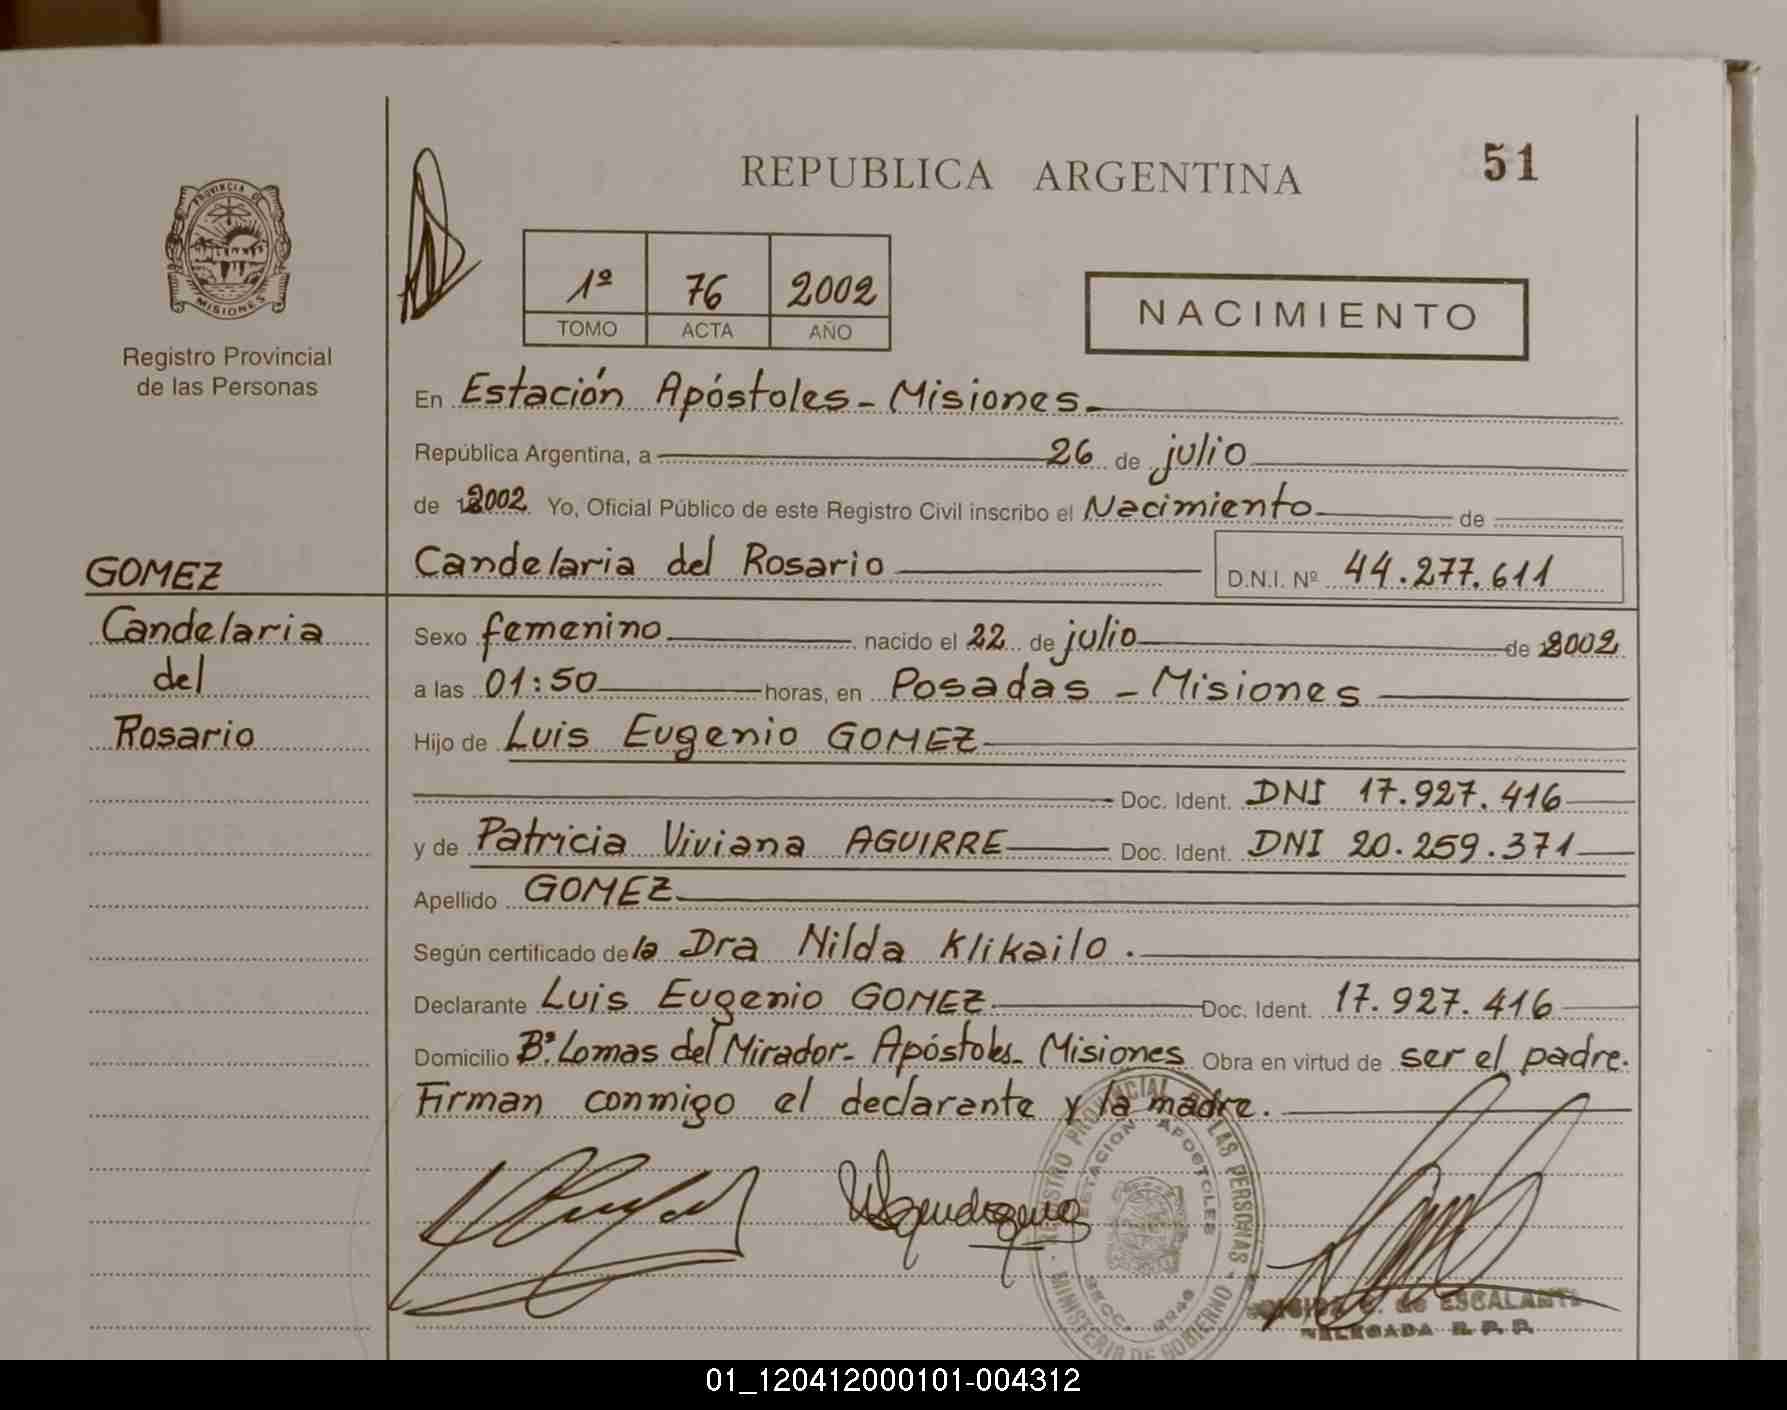 51
REPUBLICA ARGENTINA
PROVINCIA DE
MISIONES
Registro Provincial
de las Personas
1º 76 2002
TOMO ACTA AÑO
NACIMIENTO
En Estación Apóstoles - Misiones
República Argentina, a 26 de julio
de 2002 Yo, Oficial Público de este Registro Civil inscribo el Nacimiento de
Candelaria del Rosario D.N.I. Nº 44.277.611
GOMEZ
Candelaria
del
Rosario
Sexo femenino nacido el 22 de julio de 2002
a las 01:50 horas, en Posadas - Misiones
Hijo de Luis Eugenio GOMEZ
Doc. Ident. DNI 17.927.416
y de Patricia Viviana AGUIRRE Doc. Ident. DNI 20.259.371
Apellido GOMEZ
Según certificado de la Dra Nilda Klikailo.
Declarante Luis Eugenio GOMEZ Doc. Ident. 17.927.416
Domicilio Bº. Lomas del Mirador - Apóstoles - Misiones Obra en virtud de ser el padre.
Firman conmigo el declarante y la madre.
REGISTRO PROVINCIAL DE LAS PERSONAS
ESTACION APOSTOLES
MINISTERIO DE GOBIERNO
de ESCALANTE
DELEGADA R. P. P.
01_120412000101-004312